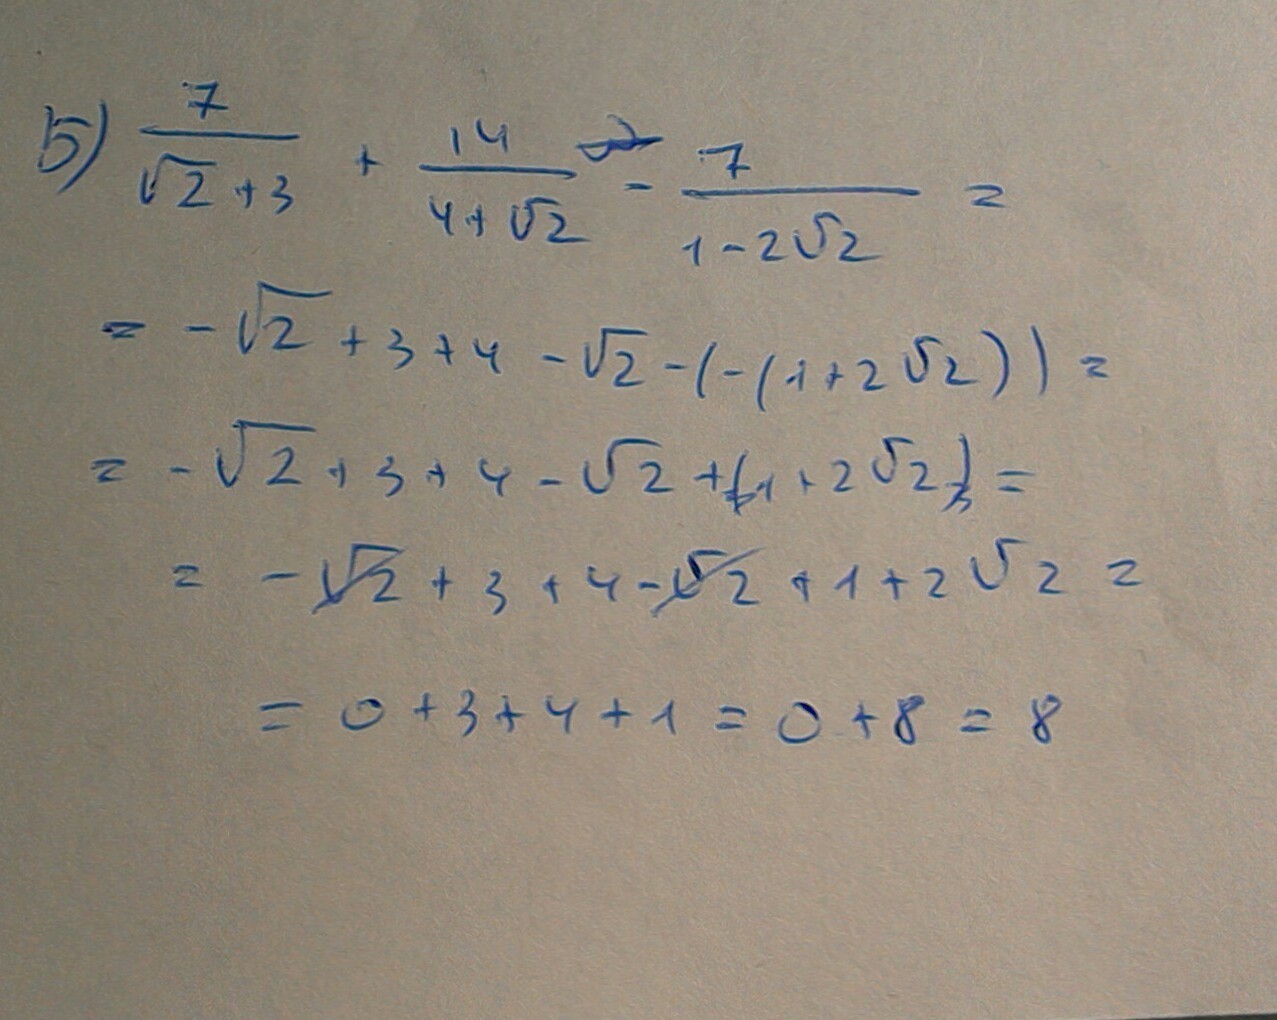 5) 7/(√2 + 3) + 14/(4 + √2) - 7/(1 - 2√2) =
= -√2 + 3 + 4 - √2 - (-(1 + 2√2)) =
= -√2 + 3 + 4 - √2 + (1 + 2√2) =
= -√2 + 3 + 4 - √2 + 1 + 2√2 =
= 0 + 3 + 4 + 1 = 0 + 8 = 8